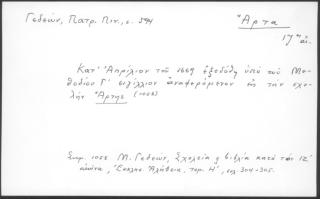 Γεδεών, Πατρ. Πιν., σ. 594
Ἄρτα
17ος αἰ.
Κατ' Ἀπρίλιον τοῦ 1669 ἐξεδόθη ὑπὸ τοῦ Με-
θοδίου Γ΄ σιγίλλιον ἀναφερόμενον εἰς τὴν σχο-
λὴν Ἄρτης
Μ. Γεδεών, Σχολεῖα καὶ βιβλία κατὰ τὸν ΙΖ΄
αἰῶνα, Ἐκκλησ. Ἀλήθεια, τομ. Η΄, σελ. 304-305.